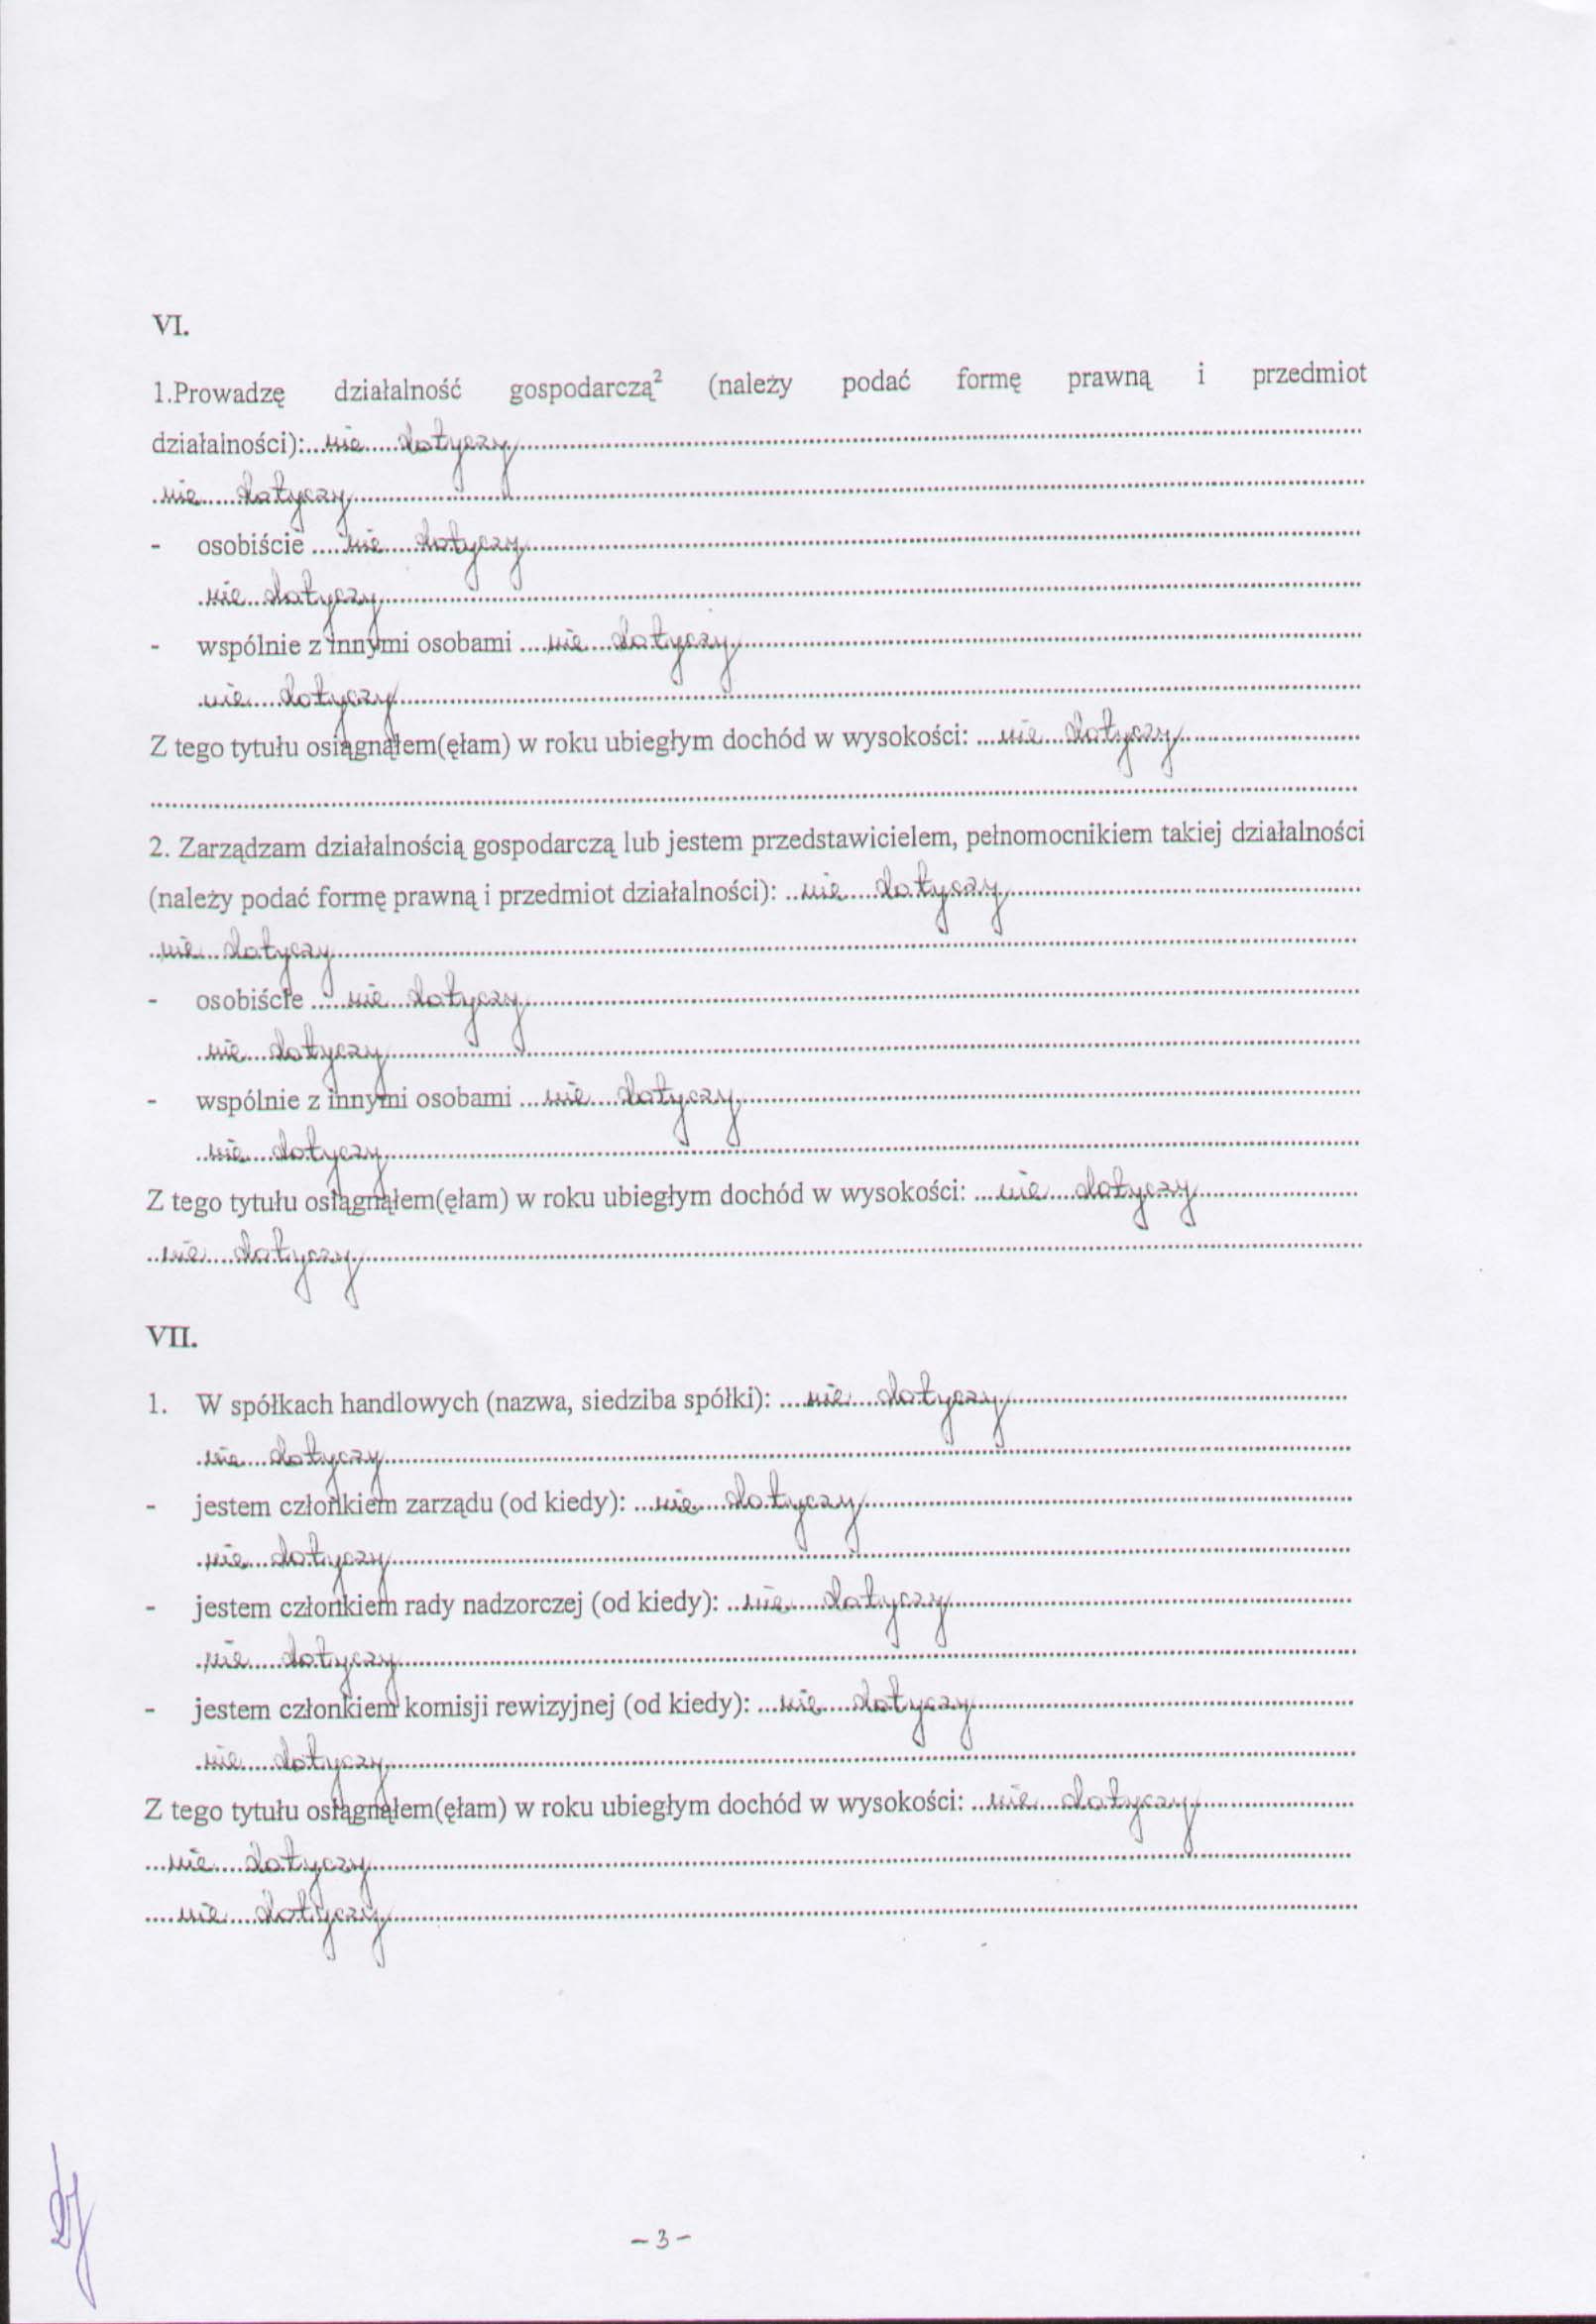 VI.
1.Prowadzę działalność gospodarczą² (należy podać formę prawną i przedmiot
działalności):....nie......dotyczy
nie dotyczy
- osobiście ....nie dotyczy
nie dotyczy
- wspólnie z innymi osobami ....nie dotyczy
nie dotyczy
Z tego tytułu osiągnąłem(ęłam) w roku ubiegłym dochód w wysokości: ...nie dotyczy
2. Zarządzam działalnością gospodarczą lub jestem przedstawicielem, pełnomocnikiem takiej działalności
(należy podać formę prawną i przedmiot działalności): ..nie dotyczy
nie dotyczy
- osobiście .....nie dotyczy
nie dotyczy
- wspólnie z innymi osobami ...nie dotyczy
nie dotyczy
Z tego tytułu osiągnąłem(ęłam) w roku ubiegłym dochód w wysokości: ...nie dotyczy
nie dotyczy
VII.
1. W spółkach handlowych (nazwa, siedziba spółki): ...nie dotyczy
nie dotyczy
- jestem członkiem zarządu (od kiedy): ...nie dotyczy
nie dotyczy
- jestem członkiem rady nadzorczej (od kiedy): ..nie dotyczy
nie dotyczy
- jestem członkiem komisji rewizyjnej (od kiedy): ...nie dotyczy
nie dotyczy
Z tego tytułu osiągnąłem(ęłam) w roku ubiegłym dochód w wysokości: ..nie dotyczy
nie dotyczy
nie dotyczy
- 3 -